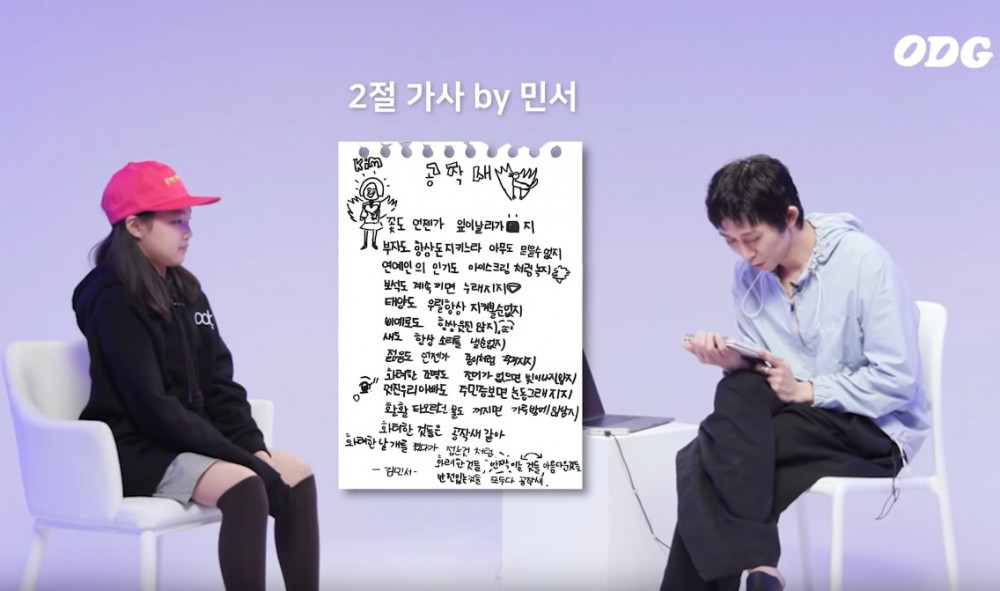 ODG
2절 가사 by 민서
Kim
공작새
꽃도 언젠가 잎이날라가 지
부자도 항상돈지키느라 아무도 믿을수없지
연예인의 인기도 아이스크림처럼 녹지
보석도 계속끼면 누래지지
태양도 우릴항상 지켜줄순없지
삐에로도 항상웃진 않지
새도 항상 소리를 낼순없지
젊음도 언젠가 종이처럼 구겨지지
화려한 조명도 전기가 없으면 빛이나지않지
멋진우리아빠도 주민증보면 눈동그래지지
활활 타오르던 불도 꺼지면 가루밖에 안남지
화려한 것들은 공작새 같아
화려한날개를 폈다가 접는것 처럼
화려한것들, 반짝이는 것들, 아름다운것들
반전있는것들 모두다 공작새.
-김민서-